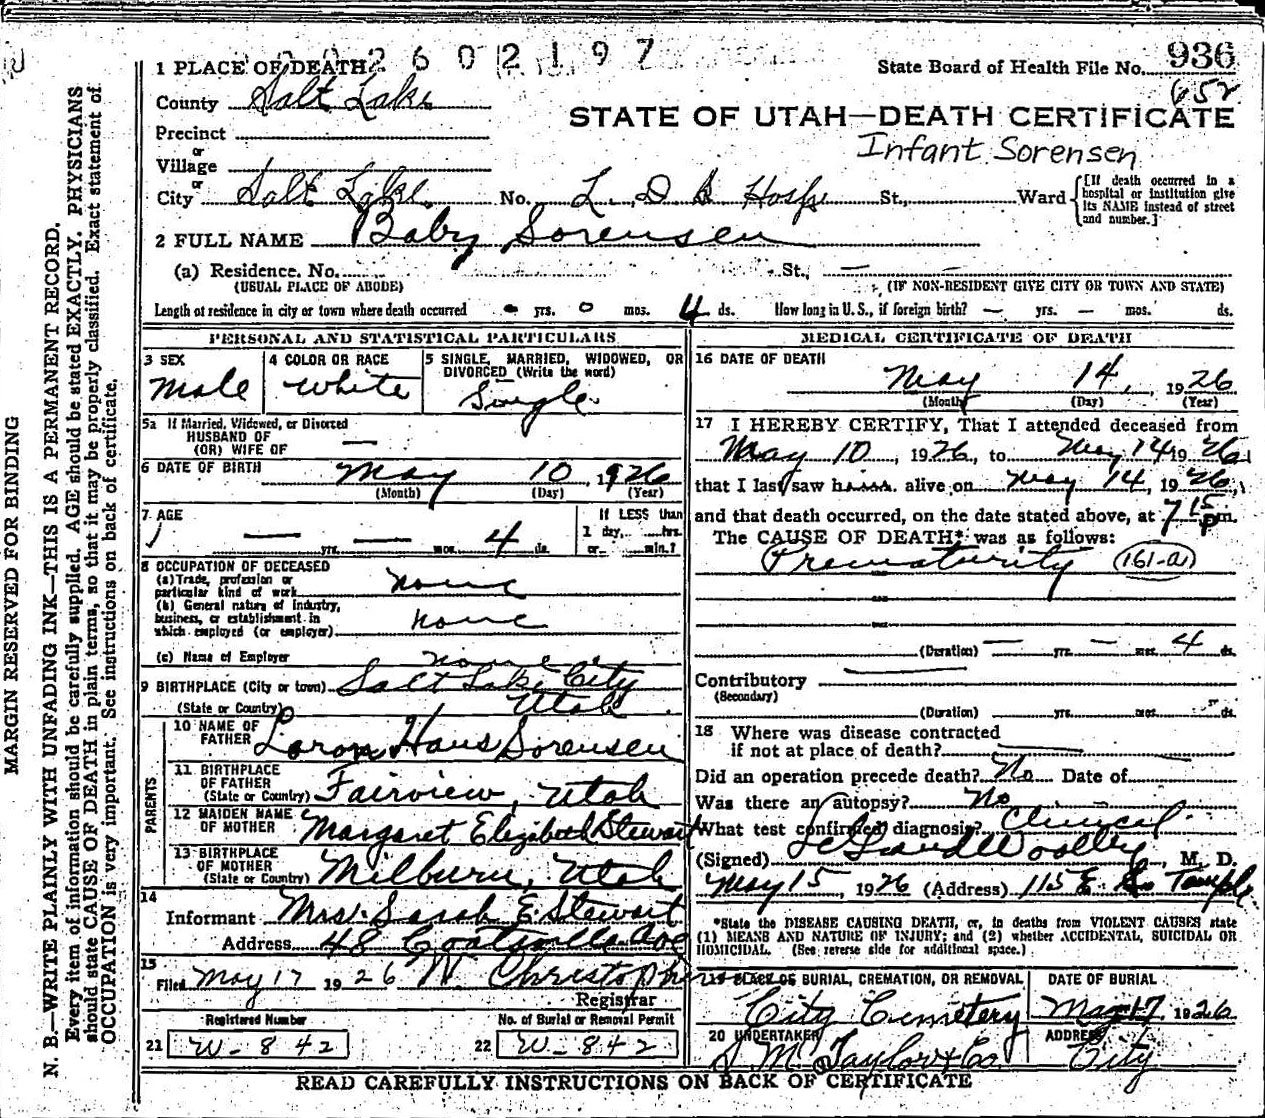 2602197
936
1 PLACE OF DEATH
State Board of Health File No.
County Salt Lake
652
STATE OF UTAH—DEATH CERTIFICATE
Precinct
or
Infant Sorensen
Village
or
City Salt Lake No. L. D. S Hosp St., Ward
[If death occurred in a hospital or institution give its NAME instead of street and number.]
2 FULL NAME Baby Sorensen
(a) Residence. No. St., — —
(USUAL PLACE OF ABODE) (IF NON-RESIDENT GIVE CITY OR TOWN AND STATE)
Length of residence in city or town where death occurred 0 yrs. 0 mos. 4 ds. How long in U. S., if foreign birth? — yrs. — mos. ds.
PERSONAL AND STATISTICAL PARTICULARS
3 SEX
Male
4 COLOR OR RACE
White
5 SINGLE, MARRIED, WIDOWED, OR
DIVORCED (Write the word)
Single
5a If Married, Widowed, or Divorced
HUSBAND OF
(OR) WIFE OF —
6 DATE OF BIRTH May 10, 1926
(Month) (Day) (Year)
7 AGE
— yrs. — mos. 4 ds.
If LESS than
1 day, hrs.
or min.?
8 OCCUPATION OF DECEASED
(a) Trade, profession or
particular kind of work none
(b) General nature of industry,
business, or establishment in
which employed (or employer) none
(c) Name of Employer none
9 BIRTHPLACE (City or town) Salt Lake City
(State or Country) Utah
PARENTS
10 NAME OF
FATHER Loron Hans Sorensen
11 BIRTHPLACE
OF FATHER
(State or Country) Fairview, Utah
12 MAIDEN NAME
OF MOTHER Margaret Elizabeth Stewart
13 BIRTHPLACE
OF MOTHER
(State or Country) Milburn, Utah
14
Informant Mrs. Sarah E. Stewart
Address 48 Coatsville Ave
15
Filed May 17 1926 W Christopherson
Registrar
Registered Number No. of Burial or Removal Permit
21 W-842 22 W-842
MEDICAL CERTIFICATE OF DEATH
16 DATE OF DEATH
May 14, 1926
(Month) (Day) (Year)
17 I HEREBY CERTIFY, That I attended deceased from
May 10, 1926, to May 14 1926
that I last saw h alive on May 14, 1926,
and that death occurred, on the date stated above, at 7 15 p m.
The CAUSE OF DEATH* was as follows:
Prematurity (161-a)
(Duration) — yrs. — mos. 4 ds.
Contributory
(Secondary)
(Duration) yrs. mos. ds.
18 Where was disease contracted
if not at place of death?
Did an operation precede death? No Date of
Was there an autopsy? No
What test confirmed diagnosis? Clinical
(Signed) LeGrand Woolley, M. D.
May 15, 1926 (Address) 115 E So Temple
*State the DISEASE CAUSING DEATH, or, in deaths from VIOLENT CAUSES state
(1) MEANS AND NATURE OF INJURY; and (2) whether ACCIDENTAL, SUICIDAL OR
HOMICIDAL. (See reverse side for additional space.)
19 PLACE OF BURIAL, CREMATION, OR REMOVAL
City Cemetery
DATE OF BURIAL
May 17 1926
20 UNDERTAKER
S. M. Taylor & Co.
ADDRESS
City
READ CAREFULLY INSTRUCTIONS ON BACK OF CERTIFICATE
MARGIN RESERVED FOR BINDING
N. B.—WRITE PLAINLY WITH UNFADING INK—THIS IS A PERMANENT RECORD.
Every item of information should be carefully supplied. AGE should be stated EXACTLY. PHYSICIANS
should state CAUSE OF DEATH in plain terms, so that it may be properly classified. Exact statement of
OCCUPATION is very important. See instructions on back of certificate.